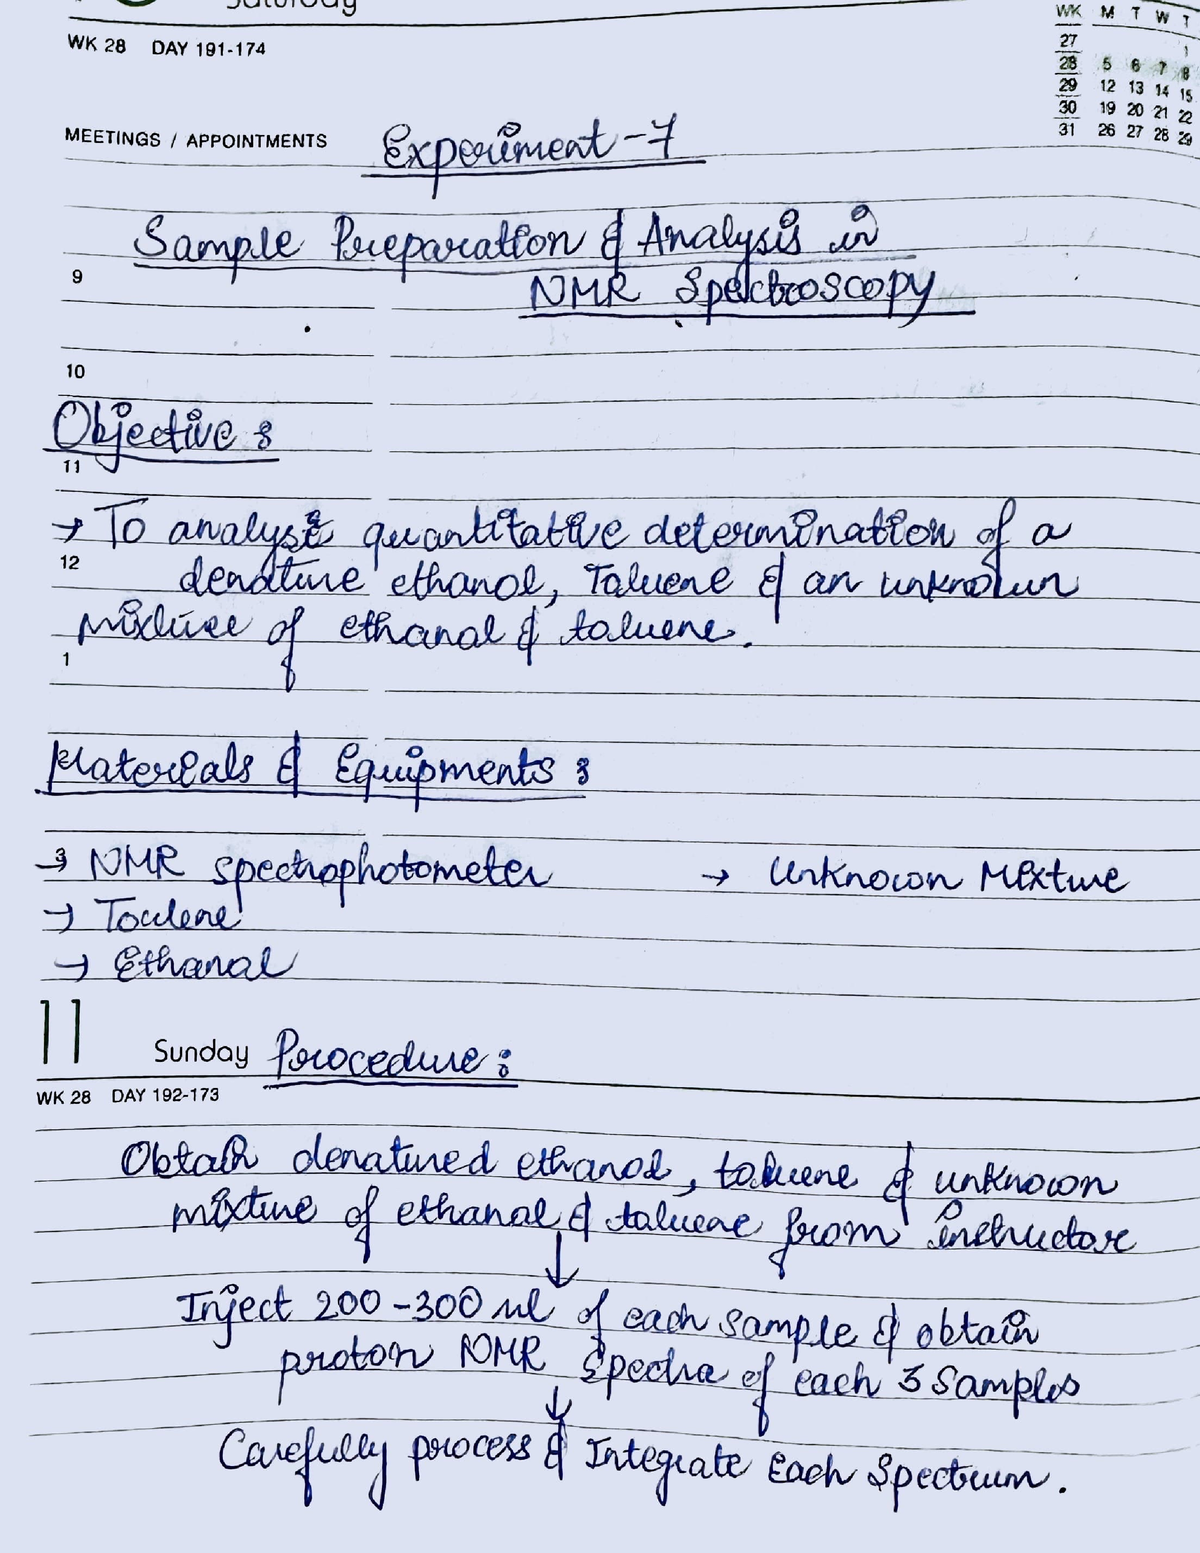 Saturday
WK 28 DAY 191-174
WK M T W T
27 1
28 5 6 7 8
29 12 13 14 15
30 19 20 21 22
31 26 27 28 29
MEETINGS / APPOINTMENTS Experiment-7
Sample Preparation & Analysis in
9 NMR Spectroscopy
10
Objective :
11
→ To analyse quantitative determination of a
12 denature ethanol, Taluene & an unknown
mixture of ethanal & taluene.
1
Materials & Equipments :
3 → NMR spectrophotometer → Unknown Mixture
→ Toulene
→ Ethanal
11 Sunday Procedure :
WK 28 DAY 192-173
Obtain denatured ethanol, taluene & unknown
mixture of ethanal & taluene from instructor
↓
Inject 200-300 ul of each sample & obtain
proton NMR spectra of each 3 Samples
↓
Carefully process & Integrate Each Spectrum.